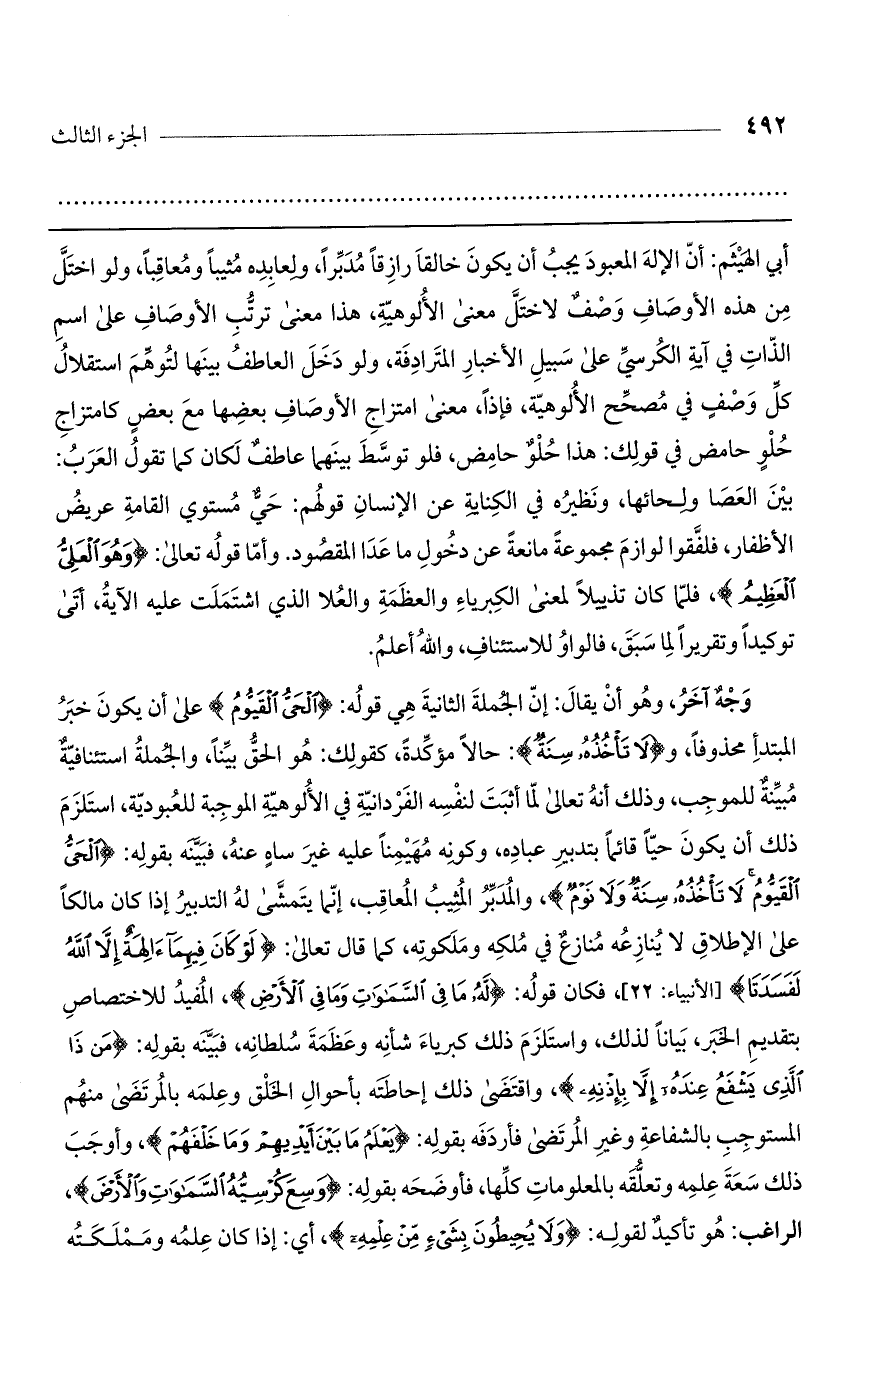 ٤٩٢ الجزء الثالث
أبي الهَيْثَم: أنّ الإلهَ المعبودَ يجبُ أن يكونَ خالقاً رازِقاً مُدَبِّراً، ولِعابِدِه مُثيباً ومُعاقِباً، ولو اختلَّ
مِن هذه الأوصَافِ وَصْفٌ لاختَلَّ معنىٰ الأُلوهيّةِ، هذا معنى ترتُّبِ الأوصَافِ علىٰ اسمِ
الذّاتِ في آيةِ الكُرسيِّ علىٰ سَبيلِ الأخبارِ المتَرادِفَة، ولو دَخَلَ العاطفُ بينَها لتُوهِّمَ استقلالُ
كلِّ وَصْفٍ في مُصحِّح الأُلوهيّة، فإذاً، معنىٰ امتزاجِ الأوصَافِ بعضِها معَ بعضٍ كامتزاجِ
حُلْوٍ حامض في قولِك: هذا حُلْوٌ حامِض، فلو توسَّطَ بينَهما عاطفٌ لَكان كما تقولُ العَرَبُ:
بيْنَ العَصَا ولِحائها، ونَظيرُه في الكِنايةِ عن الإنسانِ قولُهم: حَيٌّ مُستوي القامةِ عريضُ
الأظفار، فلفَّقوا لوازمَ مجموعةً مانعةً عن دخُولِ ما عَدَا المقصُود. وأمّا قولُه تعالىٰ: ﴿وَهُوَ ٱلْعَلِىُّ
ٱلْعَظِيمُ﴾، فلمّا كان تذييلاً لمعنىٰ الكِبرياءِ والعظَمَةِ والعُلا الذي اشتَمَلَت عليه الآيةُ، أتىٰ
توكيداً وتقريراً لِما سَبَقَ، فالواوُ للاستئنافِ، واللهُ أعلمُ.
وَجْهٌ آخَرُ، وهُو أنْ يقالَ: إنّ الجُملةَ الثانيةَ هِي قولُه: ﴿ٱلْحَىُّ ٱلْقَيُّومُ﴾ علىٰ أن يكونَ خبَرُ
المبتدأِ محذوفاً، و﴿لَا تَأْخُذُهُۥ سِنَةٌ﴾: حالاً مؤكِّدةً، كقولِك: هُو الحقُّ بيِّناً، والجُملةُ استئنافيّةٌ
مُبيِّنةٌ للموجِب، وذلك أنهُ تعالىٰ لمّا أثبَتَ لنفْسِه الفَرْدانيّةِ في الأُلوهيّةِ الموجِبة للعُبوديّة، استَلزَمَ
ذلك أن يكونَ حيّاً قائماً بتدبيرِ عبادِه، وكونِه مُهَيْمِناً عليه غيرَ ساهٍ عنهُ، فبيَّنَه بقولِه: ﴿ٱلْحَىُّ
ٱلْقَيُّومُ ۚ لَا تَأْخُذُهُۥ سِنَةٌ وَلَا نَوْمٌ﴾، والمُدبِّرُ المُثيبُ المُعاقِب، إنّما يتمشَّىٰ لهُ التدبيرُ إذا كان مالكاً
علىٰ الإطلاقِ لا يُنازِعُه مُنازعٌ في مُلكِه ومَلَكوتِه، كما قال تعالىٰ: ﴿لَوْ كَانَ فِيهِمَآ ءَالِهَةٌ إِلَّا ٱللَّهُ
لَفَسَدَتَا﴾ [الأنبياء: ٢٢]، فكان قولُه: ﴿لَّهُۥ مَا فِى ٱلسَّمَٰوَٰتِ وَمَا فِى ٱلْأَرْضِ﴾، المُفيدُ للاختصاصِ
بتقديمِ الخَبَر، بَياناً لذلك، واستَلزَمَ ذلك كبرياءَ شأنِه وعَظَمَةَ سُلطانِه، فبَيَّنَه بقولِه: ﴿مَن ذَا
ٱلَّذِى يَشْفَعُ عِندَهُۥٓ إِلَّا بِإِذْنِهِۦ﴾، واقتَضَىٰ ذلك إحاطتَه بأحوالِ الخَلْق وعِلمَه بالمُرتَضَىٰ منهُم
المستوجِبِ بالشفاعةِ وغيرِ المُرتَضىٰ فأردَفَه بقولِه: ﴿يَعْلَمُ مَا بَيْنَ أَيْدِيهِمْ وَمَا خَلْفَهُمْ﴾، وأوجَبَ
ذلك سَعَةَ عِلمِه وتعلُّقَه بالمعلوماتِ كلِّها، فأوضَحَه بقولِه: ﴿وَسِعَ كُرْسِيُّهُ ٱلسَّمَٰوَٰتِ وَٱلْأَرْضَ﴾،
الراغب: هُو تأكيدٌ لقولِه: ﴿وَلَا يُحِيطُونَ بِشَىْءٍ مِّنْ عِلْمِهِۦٓ﴾، أي: إذا كان عِلمُه ومَمْلَكَتُه